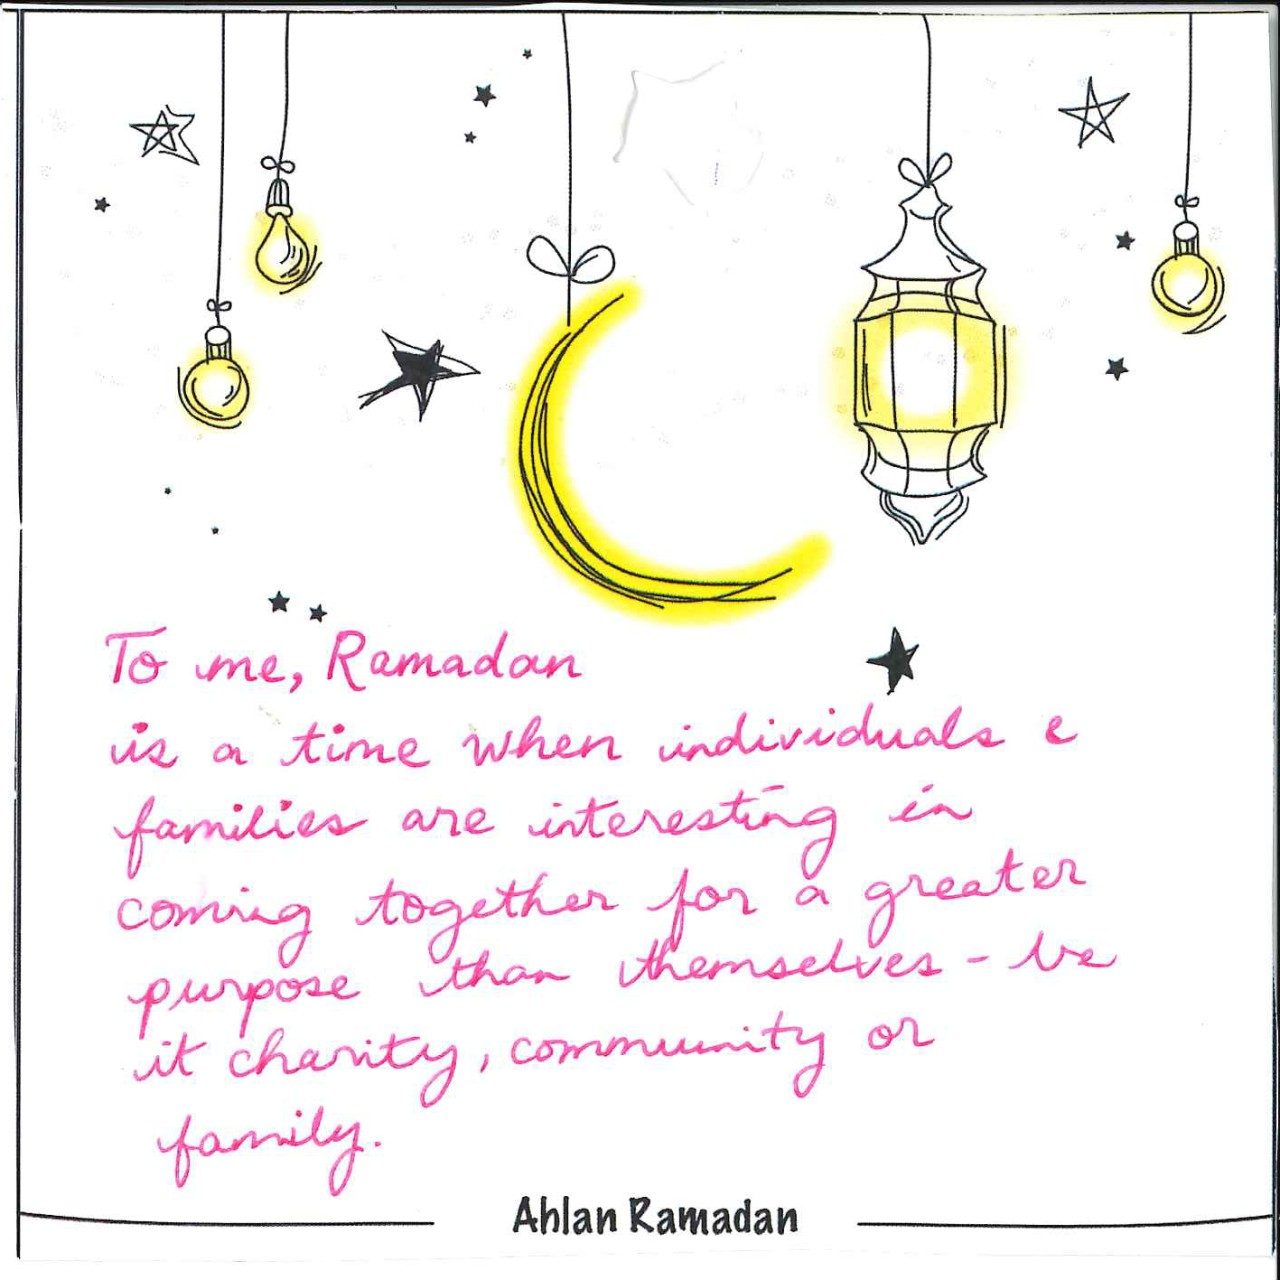 To me, Ramadan
is a time when individuals &
families are interesting in
coming together for a greater
purpose than themselves - be
it charity, community or
family.
Ahlan Ramadan